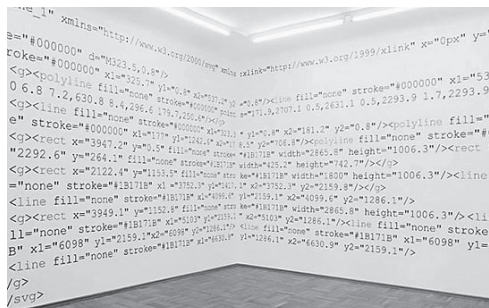 ne_1" xmlns="http://www.w3.org/2000/svg" xmlns:xlink="http://www.w3.org/1999/xlink" x="0px" y="
e="#000000" d="M323.5,0.8"/>
roke="#000000" x1="325.2" y1="0.8" x2="537.2" y2="0.8"/><line fill="none" stroke="#000000" x1="53
<g><polyline fill="none" stroke="#000000" points="171.9,2707.1 0.5,2631.1 0.5,2293.9 1.7,2293.9
0 6.8 7.2,630.8 8.4,296.6 179.7,250.6"/></g>
<g><line fill="none" stroke="#000000" x1="323.3" y1="0.8" x2="181.2" y2="0.8"/><polyline fill="
e" stroke="#000000" x1="177" y1="1242.6" x2="178.5" y2="706.8"/><polyline fill="none" stroke="#
<g><rect x="3947.2" y="0.5" fill="none" stroke="#1B171B" width="2865.8" height="1006.3"/><rect
"2292.6" y="264.1" fill="none" stroke="#1B171B" width="425.1" height="742.7"/></g>
<g><rect x="2122.4" y="1153.5" fill="none" stroke="#1B171B" width="1800" height="1006.3"/><line
="none" stroke="#1B171B" x1="3752.3" y1= x2="3752.3" y2="2159.8"/></g>
<line fill="none" stroke="#1B171B" x1="4099.6" y1="2159.1" x2="4099.6" y2="1286.1"/>
<g><rect x="3949.1" y="1152.8" fill="none" stroke="#1B171B" width="2865.8" height="1006.3"/><li
ll="none" stroke="#1B171B" x1="5103" y1="2159.1" x2="5103" y2="1286.1"/><line fill="none" stroke
B" x1="6098" y1="2159.1" x2="6098" y2="1286.1"/><line fill="none" stroke="#1B171B" x1="6098" y1=
<line fill="none" stroke="#1B171B" x1="6630.9" y1="1286.1" x2="6630.9" y2="2159.1"/>
/g>
/svg>